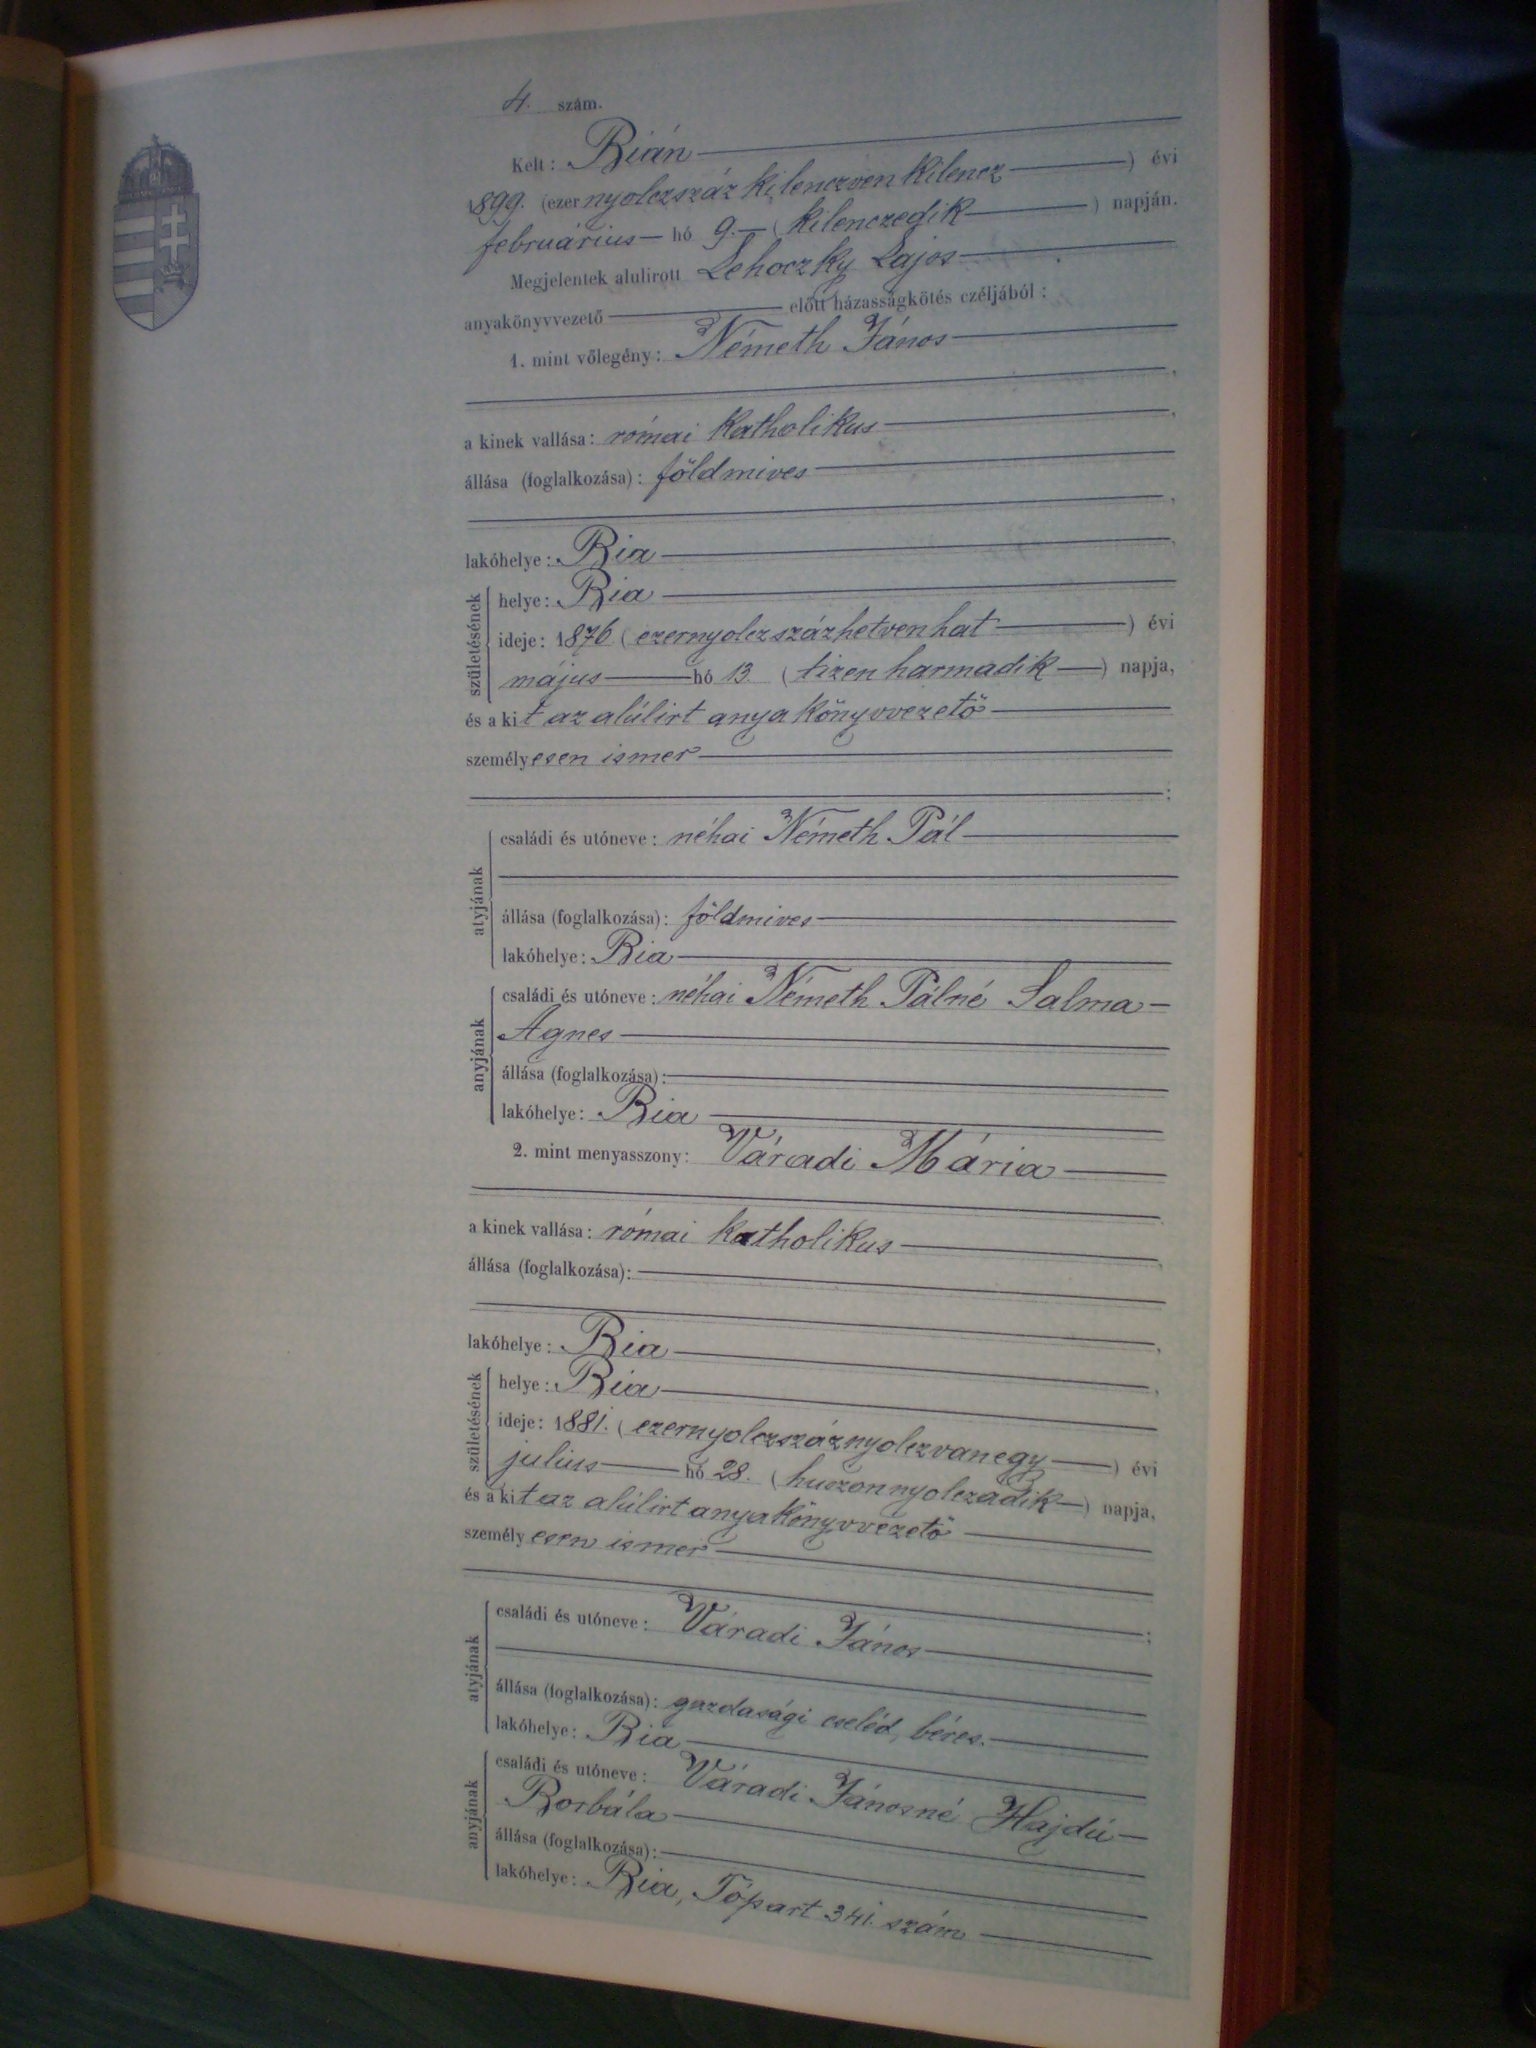 4. szám.
Kelt: Bián
1899. (ezernyolczszáz kilenczven kilencz) évi
februárius hó 9. (kilenczedik) napján.
Megjelentek alulirott Lehoczky Lajos
anyakönyvvezető előtt házasságkötés czéljából:
1. mint vőlegény: Németh János
a kinek vallása: római katholikus
állása (foglalkozása): földmives
lakóhelye: Bia
születésének helye: Bia
ideje: 1876 (ezernyolczszázhetvenhat) évi
május hó 13. (tizenharmadik) napja,
és a kit az alúlirt anyakönyvvezető
személyesen ismer
:
atyjának családi és utóneve: néhai Németh Pál
állása (foglalkozása): földmives
lakóhelye: Bia
anyjának családi és utóneve: néhai Németh Pálné Salma
Ágnes
állása (foglalkozása):
lakóhelye: Bia
2. mint menyasszony: Váradi Mária
a kinek vallása: római katholikus
állása (foglalkozása):
lakóhelye: Bia
születésének helye: Bia
ideje: 1881. (ezernyolczszáznyolczvanegy) évi
julius hó 28. (huszonnyolczadik) napja,
és a kit az alúlirt anyakönyvvezető
személyesen ismer
:
atyjának családi és utóneve: Váradi János
állása (foglalkozása): gazdasági cseléd, béres.
lakóhelye: Bia
anyjának családi és utóneve: Váradi Jánosné Hajdú
Borbála
állása (foglalkozása):
lakóhelye: Bia, Tópart 341. szám